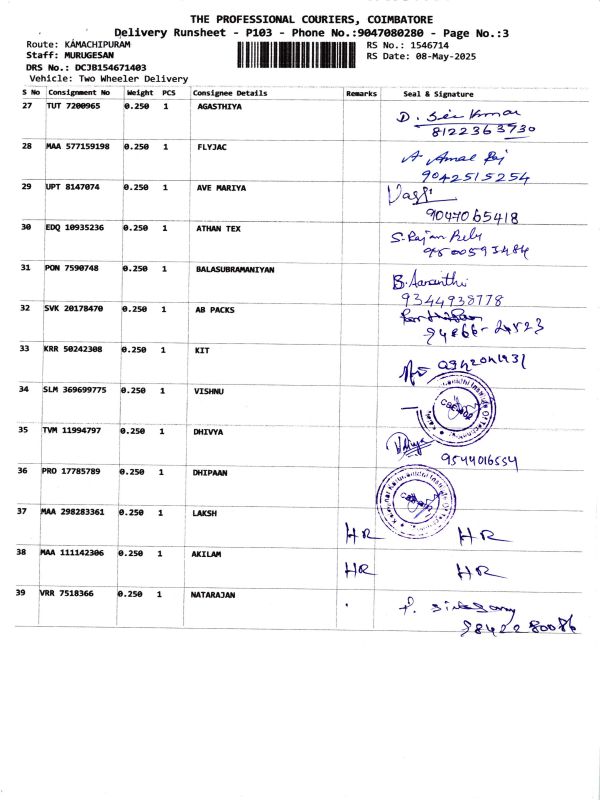 THE PROFESSIONAL COURIERS, COIMBATORE
Delivery Runsheet - P103 - Phone No.:9047080280 - Page No.:3
Route: KAMACHIPURAM RS No.: 1546714
Staff: MURUGESAN RS Date: 08-May-2025
DRS No.: DCJB154671403
Vehicle: Two Wheeler Delivery
S No Consignment No Weight PCS Consignee Details Remarks Seal & Signature
27 TUT 7200965 0.250 1 AGASTHIYA
8122363730
28 MAA 577159198 0.250 1 FLYJAC A. Amal Raj
9042515254
29 UPT 8147074 0.250 1 AVE MARIYA
9047065418
30 EDQ 10935236 0.250 1 ATHAN TEX
31 PON 7590748 0.250 1 BALASUBRAMANIYAN
9344938778
32 SVK 20178470 0.250 1 AB PACKS
33 KRR 50242308 0.250 1 KIT
34 SLM 369699775 0.250 1 VISHNU
35 TVM 11994797 0.250 1 DHIVYA
9544016554
36 PRO 17785789 0.250 1 DHIPAAN
37 MAA 298283361 0.250 1 LAKSH
HR HR
38 MAA 111142306 0.250 1 AKILAM
HR HR
39 VRR 7518366 0.250 1 NATARAJAN
9842280086